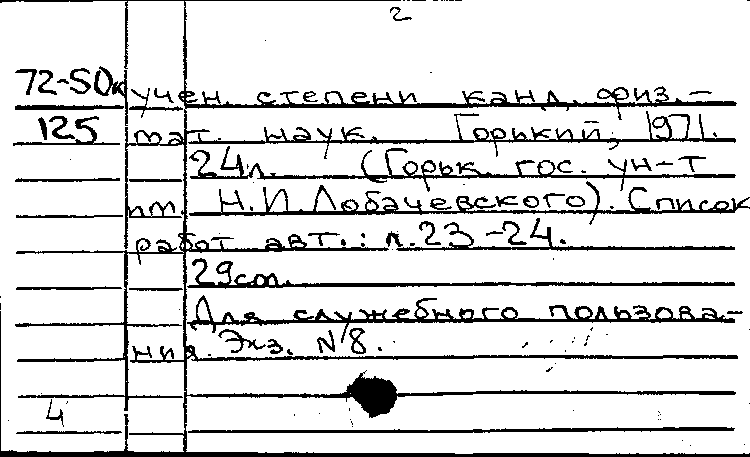 2
72-50к учен. степени канд. физ.-
125 мат. наук. Горький, 1971.
24л. (Горьк. гос. ун-т
им. Н.И. Лобачевского). Список
работ авт.: л.23-24.
29cm.
Для служебного пользова-
ния. Экз. N 8.
4